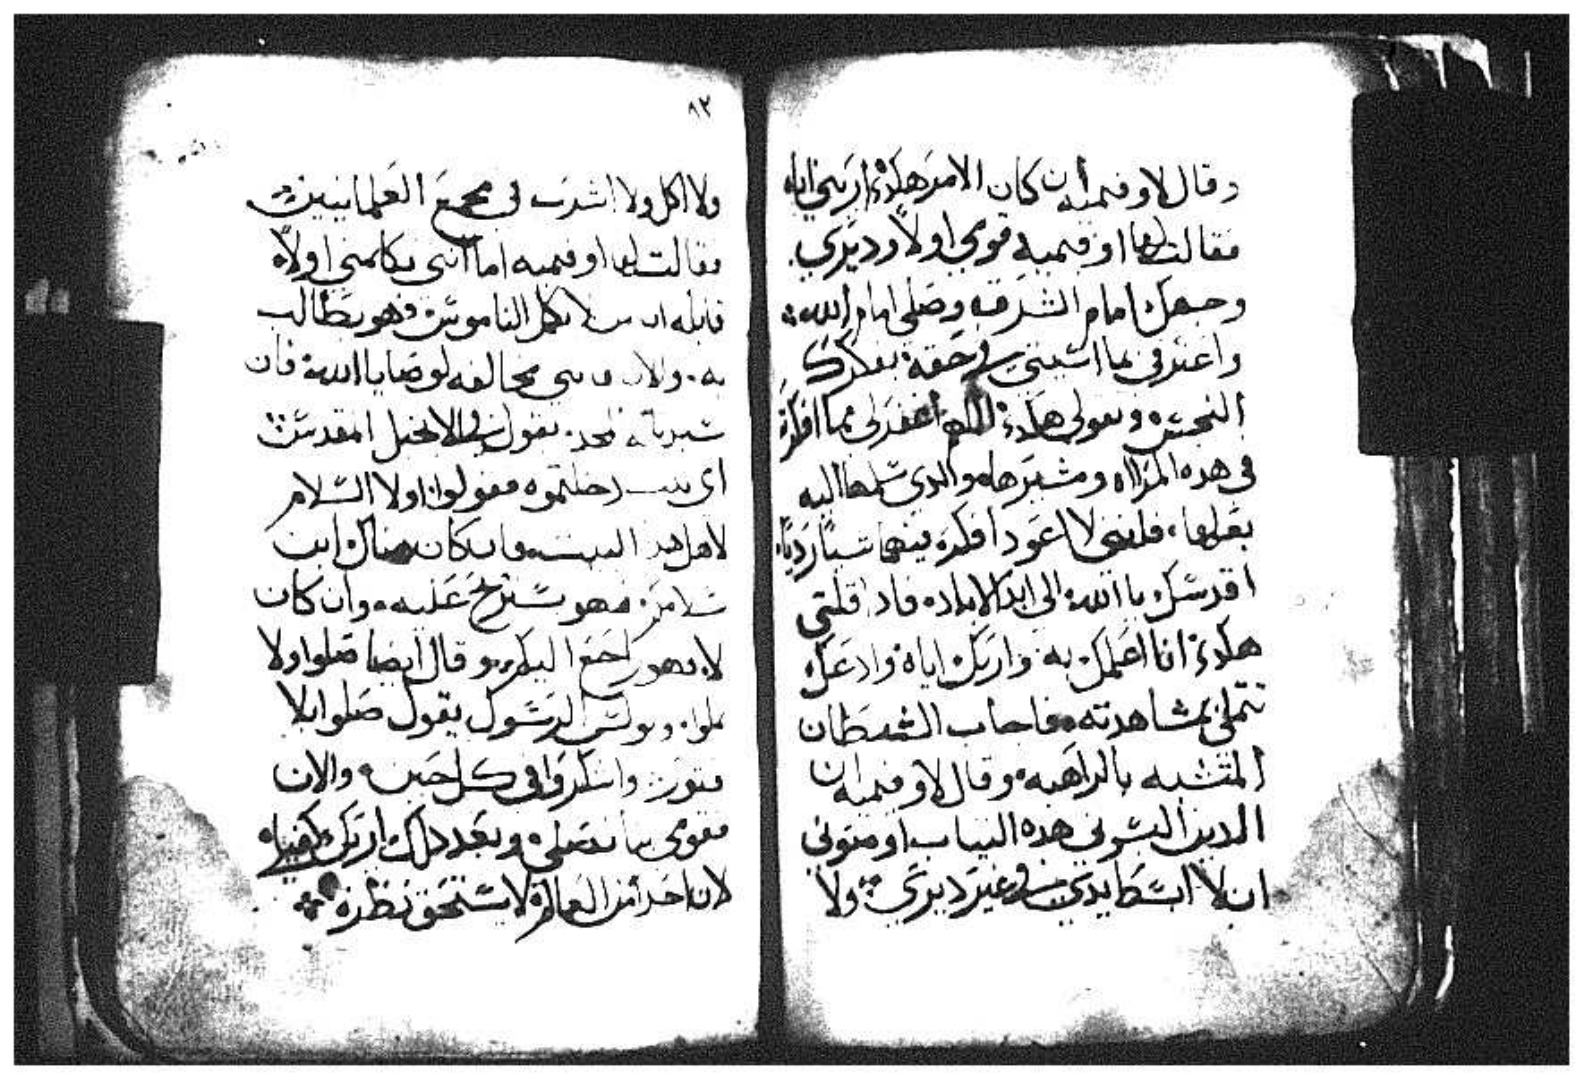 وقال لاوفميه ان كان الامر هكذى اريني اياه
فقالت لها اوفميه قومي اولاً وديري
وجهك امام الشرق وصلي امام الله
واعترفي بما اتيتي في حقه بفكرك
النجس وتقولي هكذى اللهم أغفر لي بما افكرة
في هذه المراه ومشيرها والذي سلمها اليه
بعلها فلنني لا اعود افكر فيها شيئاً ردياً
اقدسك يا الله الى ابد الاباد فاذا قلتي
هكذى انا اعلمك به واريك اياه وادعك
تتملي بمشاهدته فاجاب الشيطان
المتشبه بالراهبه وقال لاوفميه ان
الدين البسوني هذه الثياب اوصوني
ان لا ابسط يدي في غير ديري ولا
٨٢
ولا اكل ولا اشرب في مجمع العلمانيين
فقالت لها اوفميه اما انتي تكلمتي اولاً
قايله ان من لا يكمل الناموس فهو يطالب
به والان مخالفه لوصايا الله فان
يقول في الانجيل المقدس
اي بيت دخلتموه فقولوا اولا السلام
لاهل هذا البيت فان كان هناك ابن
سلامه فهو يستريح عليه وان كان
لا فهو راجع اليكم وقال ايضا صلوا ولا
تملوا وبولس الرسول يقول صلوا بلا
فتور واشكروا في كل حين والان
فقومي بنا نصلي وبعد ذلك اريك كهنياه
لان احد من العالم لا يستحق نظره